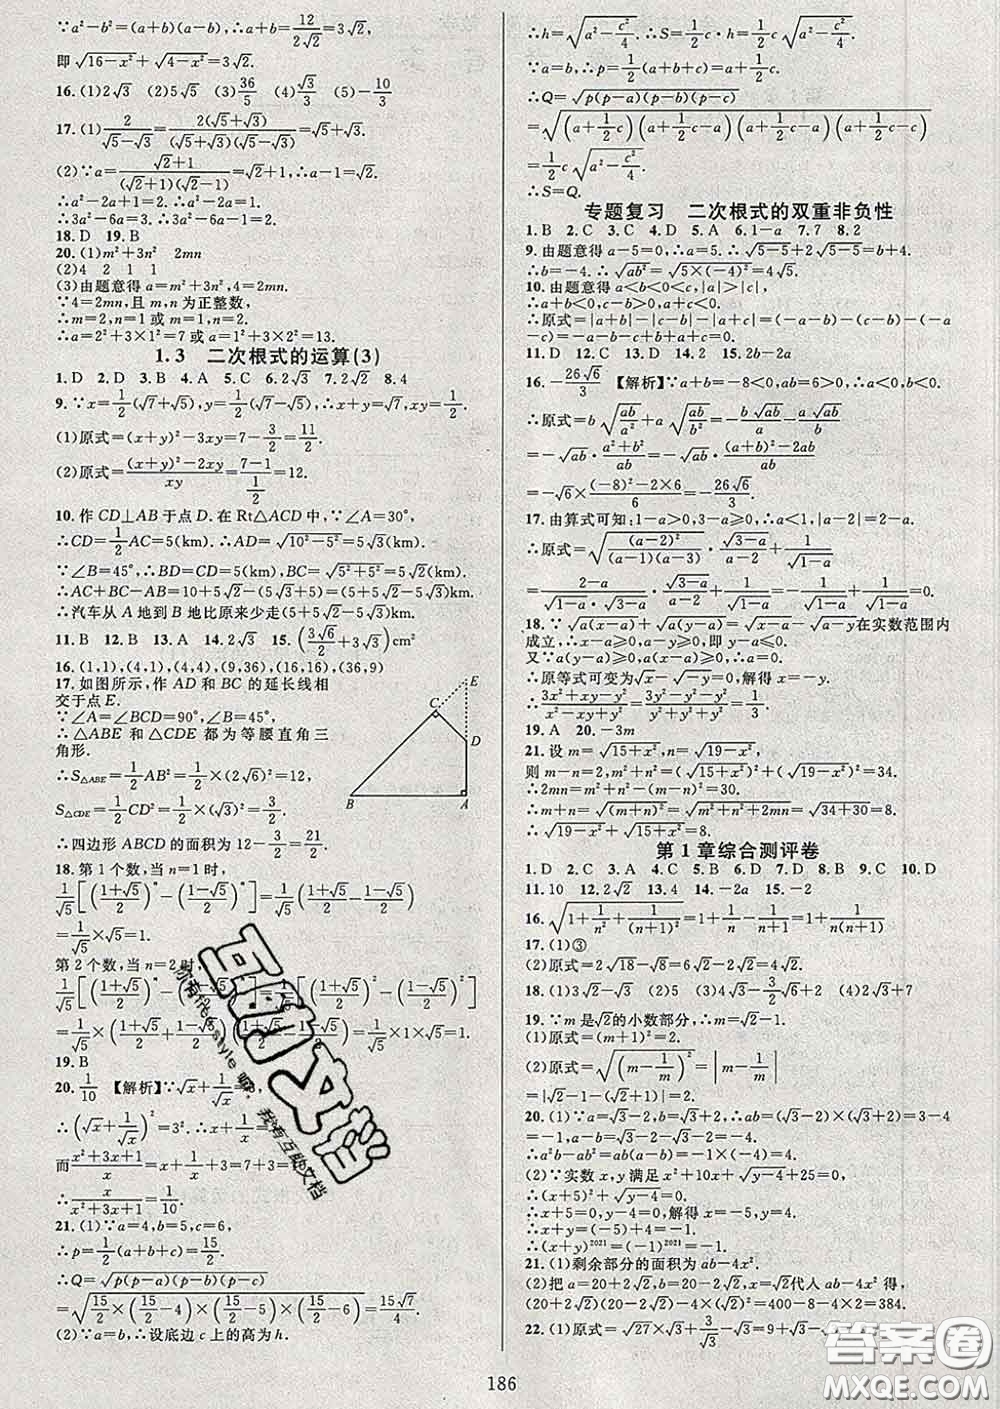 ∵a²-b²=(a+b)(a-b),∴a+b=12/(2√2)=3√2,
即√(16-x²)+√(4-x²)=3√2.
16.(1)2√3 (2)5√5 (3)36/5 (4)√3/3 (5)-10/3
17.(1)2/(√5-√3)=2(√5+√3)/((√5+√3)(√5-√3))=√5+√3.
18.D 19.B
20.(1)m²+3n² 2mn
(2)4 2 1 1
(3)由题意得a=m²+3n²,4=2mn.
∵4=2mn,且m,n为正整数,
∴m=2,n=1或m=1,n=2.
∴a=2²+3×1²=7或a=1²+3×2²=13.
1.3 二次根式的运算(3)
1.D 2.D 3.B 4.A 5.C 6.2√3 7.2√2 8.4
9.∵x=1/2(√7+√5),y=1/2(√7-√5),∴x+y=√7,xy=1/2.
(1)原式=(x+y)²-3xy=7-3/2=11/2.
(2)原式=((x+y)²-2xy)/xy=(7-1)/(1/2)=12.
10.作CD⊥AB于点D.在Rt△ACD中,∵∠A=30°,
∴CD=1/2AC=5(km).∴AD=√(10²-5²)=5√3(km).
∵∠B=45°,∴BD=CD=5(km),BC=√(5²+5²)=5√2(km).
∴AC+BC-AB=10+5√2-(5+5√3)=5+5√2-5√3(km).
∴汽车从A地到B地比原来少走(5+5√2-5√3)km.
11.B 12.B 13.A 14.2√3 15.(3√6/2+3√3)cm²
16.(1,1),(4,1),(4,4),(9,36),(16,16),(36,9)
17.如图所示,作AD和BC的延长线相
交于点E.
∵∠A=∠BCD=90°,∠B=45°,
∴△ABE和△CDE都为等腰直角三
角形.
∴S△ABE=1/2AB²=1/2×(2√6)²=12,
S△CDE=1/2CD²=1/2×(√3)²=3/2.
∴四边形ABCD的面积为12-3/2=21/2.
E
C
D
B
A
18.第1个数,当n=1时,
1/√5[((1+√5)/2)ⁿ-((1-√5)/2)ⁿ]=1/√5((1+√5)/2-(1-√5)/2)
=1/√5×√5=1.
第2个数,当n=2时,
=1/√5×((1+√5)/2+(1-√5)/2)((1+√5)/2-(1-√5)/2)=1/√5×1×√5=1.
19.B
20.1/10 【解析】∵√x+1/√x=3,
∴(√x+1/√x)²=3².∴x+1/x
而(x²+3x+1)/x=x+1/x+3=7+3=10,
∴x/(x²+3x+1)=1/10.
21.(1)∵a=4,b=5,c=6,
∴p=1/2(a+b+c)=15/2.
∴Q=√(p(p-a)(p-b)(p-c))
=√(15/2(15/2-4)(15/2-5)(15/2-6))=15√7/4.
(2)∵a=b,∴设底边c上的高为h.
∴h=√(a²-c²/4).∴S=1/2c·h=1/2c√(a²-c²/4).
∵a=b,∴p=1/2(a+b+c)=a+1/2c.
∴Q=√(p(p-a)(p-b)(p-c))
=√((a+1/2c)(a+1/2c-a)(a+1/2c-a)(a+1/2c-c))
=1/2c√(a²-c²/4).
∴S=Q.
专题复习 二次根式的双重非负性
1.B 2.C 3.C 4.D 5.A 6.1-a 7.7 8.2
9.由题意得a-5=0,∴a=5.∴√(5-5)+2√(5-5)=b+4.
∴b=-4.∴√(ab²)=√(5×(-4)²)=4√5.
10.由题意得a<b<0<c,|a|>|c|,
∴a+b<0,b-c<0,a+c<0.
∴原式=|a+b|-|b-c|-|a+c|=(-a-b)-(-b+c)-(-a
-c)=-a-b+b-c+a+c=0.
11.D 12.D 13.D 14.2 15.2b-a
16.-26√6/3 【解析】∵a+b=-8<0,ab=6>0,∴a<0,b<0.
∴原式=b√(ab/a²)+a√(ab/b²)=-b√ab/a-a√ab/b
=-√ab·(a²+b²)/ab=-√ab·((a+b)²-2ab)/ab
=-√6×((-8)²-2×6)/6=-26√6/3.
17.由算式可知:1-a>0,3-a≥0,∴a<1,|a-2|=2-a.
∴原式=√((a-2)²/((a-1)(a-3)))·√(3-a)/(a-2)+1/√(1-a)
=(2-a)/(√(1-a)·√(3-a))·√(3-a)/(a-2)+1/√(1-a)=-1/√(1-a)+1/√(1-a)=0.
18.∵√(a(x-a))+√(a(y-a))=√(x-a)-√(a-y)在实数范围内
成立,∴x-a≥0,a-y≥0,即y-a≤0.
又∵a(y-a)≥0,a(x-a)≥0,∴a=0.
∴原等式可变为√x-√(-y)=0,解得x=-y.
∴(3x²+xy-y²)/(x²-xy+y²)=(3y²-y²-y²)/(y²+y²+y²)=1/3.
19.A 20.-3m
21.设m=√(15+x²),n=√(19-x²),
则m-n=2,m²+n²=(√(15+x²))²+(√(19-x²))²=34.
∴2mn=m²+n²-(m-n)²=30.
∴m+n=√((m+n)²)=√(m²+n²+2mn)=√(34+30)=8.
∴√(19-x²)+√(15+x²)=8.
第1章综合测评卷
1.D 2.C 3.A 4.C 5.B 6.D 7.B 8.B 9.C 10.D
11.10 12.2√2 13.4 14.-2a 15.-2
16.√(1+1/n²+1/(n+1)²)=1+1/n-1/(n+1)=1+1/(n(n+1))
17.(1)③
(2)原式=2√18-√8=6√2-2√2=4√2.
18.(1)3√2-√3 (2)5 (3)4√3-3/2√2+√6 (4)2√3+7
19.∵m是√2的小数部分,∴m=√2-1.
(1)原式=(m+1)²=2.
(2)原式=√((m-1/m)²)=|m-1/m|
=|√2-1-(√2+1)|=2.
20.(1)∵a=√3-2,b=√3+2,∴ab=(√3-2)×(√3+2)=3-4
=-1.∴a²b-ab²=ab(a-b)=-1×(√3-2-√3-2)=4.
(2)∵实数x,y满足x²+10x+√(y-4)+25=0,
∴(x+5)²+√(y-4)=0.
∴x+5=0,y-4=0,解得x=-5,y=4.
∴x+y=(-5)+4=-1.
∴(x+y)²⁰²¹=(-1)²⁰²¹=-1.
21.(1)剩余部分的面积为ab-4x².
(2)把a=20+2√2,b=20-2√2,x=√2代入ab-4x²得,
(20+2√2)(20-2√2)-4×(√2)²=400-8-4×2=384.
186
互助文档
你有freestyle嘛,
我有互助文档
答案圈
MXQE.COM